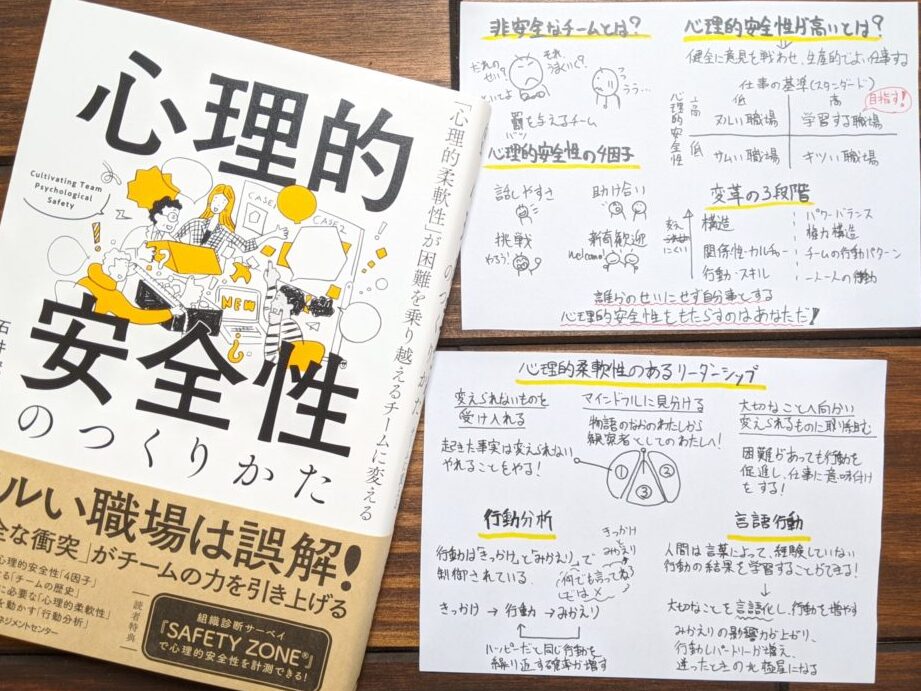 心理的
安全性
のつくりかた
Cultivating Team
Psychological
Safety
CASE1
CASE2
NEW
「心理的柔軟性」が困難を乗り越えるチームに変える
石井
ルい職場は誤解!
全な衝突」がチームの力を引き上げる
心理的安全性「4因子」
る「チームの歴史」
に必要な「心理的柔軟性」
を動かす「行動分析」
ネジメントセンター
読者特典
組織診断サーベイ
『SAFETY ZONE®』
で心理的安全性を計測できる!
非安全なチームとは?
だれの
せい?
それ
うまくいく?
うう…
罰を与えるチーム
バツ
心理的安全性の4因子
話しやすさ
助け合い
挑戦
やろう!
新奇歓迎
welcome!
心理的安全性が高いとは?
健全に意見を戦わせ、生産的でよい仕事する
仕事の基準(スタンダード)
低
高
目指す!
心理的安全性
高
ヌルい職場
学習する職場
低
サムい職場
キツい職場
変革の3段階
変え
にくい
構造
パワーバランス
権力構造
関係性・カルチャー
チームの行動パターン
行動・スキル
一人一人の行動
誰かのせいにせず自分事とする
心理的安全性をもたらすのはあなただ!
心理的柔軟性のあるリーダーシップ
変えられないものを
受け入れる
起きた事実は変えられない
やれることをやる!
マインドフルに見分ける
物語のなかのわたしから
観察者としてのわたしへ!
①
②
③
大切なことへ向かい
変えられるものに取り組む
困難があっても行動を
促進し、仕事に意味付け
をする!
行動分析
行動は「きっかけ」と「みかえり」で
制御されている。
きっかけ
みかえり
「何でも言ってね」
では×
きっかけ → 行動 → みかえり
ハッピーだと同じ行動を
繰り返す確率が増す
言語行動
人間は言葉によって、経験していない
行動の結果を学習することができる!
大切なことを言語化し、行動を増やす
みかえりの影響力が上がり、
行動レパートリーが増え、
迷ったときの北極星になる